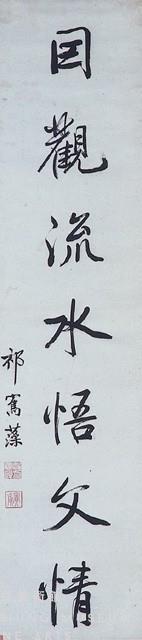 因觀流水悟文情
祁寯藻